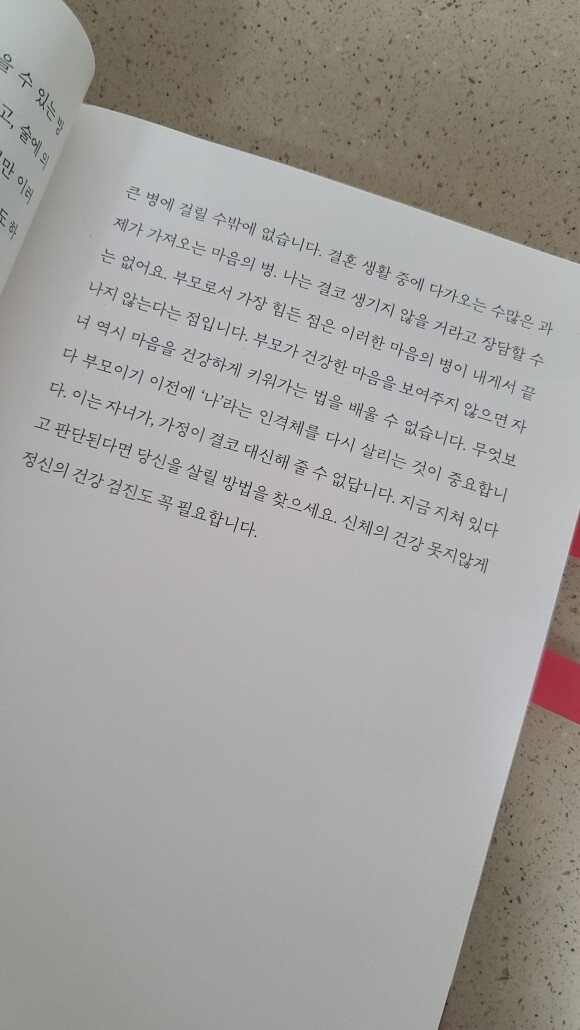 을 수 있는 방
고, 술에 의
만 이러
도 하
큰 병에 걸릴 수밖에 없습니다. 결혼 생활 중에 다가오는 수많은 과
제가 가져오는 마음의 병. 나는 결코 생기지 않을 거라고 장담할 수
는 없어요. 부모로서 가장 힘든 점은 이러한 마음의 병이 내게서 끝
나지 않는다는 점입니다. 부모가 건강한 마음을 보여주지 않으면 자
녀 역시 마음을 건강하게 키워가는 법을 배울 수 없습니다. 무엇보
다 부모이기 이전에 ‘나’라는 인격체를 다시 살리는 것이 중요합니
다. 이는 자녀가, 가정이 결코 대신해 줄 수 없답니다. 지금 지쳐 있다
고 판단된다면 당신을 살릴 방법을 찾으세요. 신체의 건강 못지않게
정신의 건강 검진도 꼭 필요합니다.